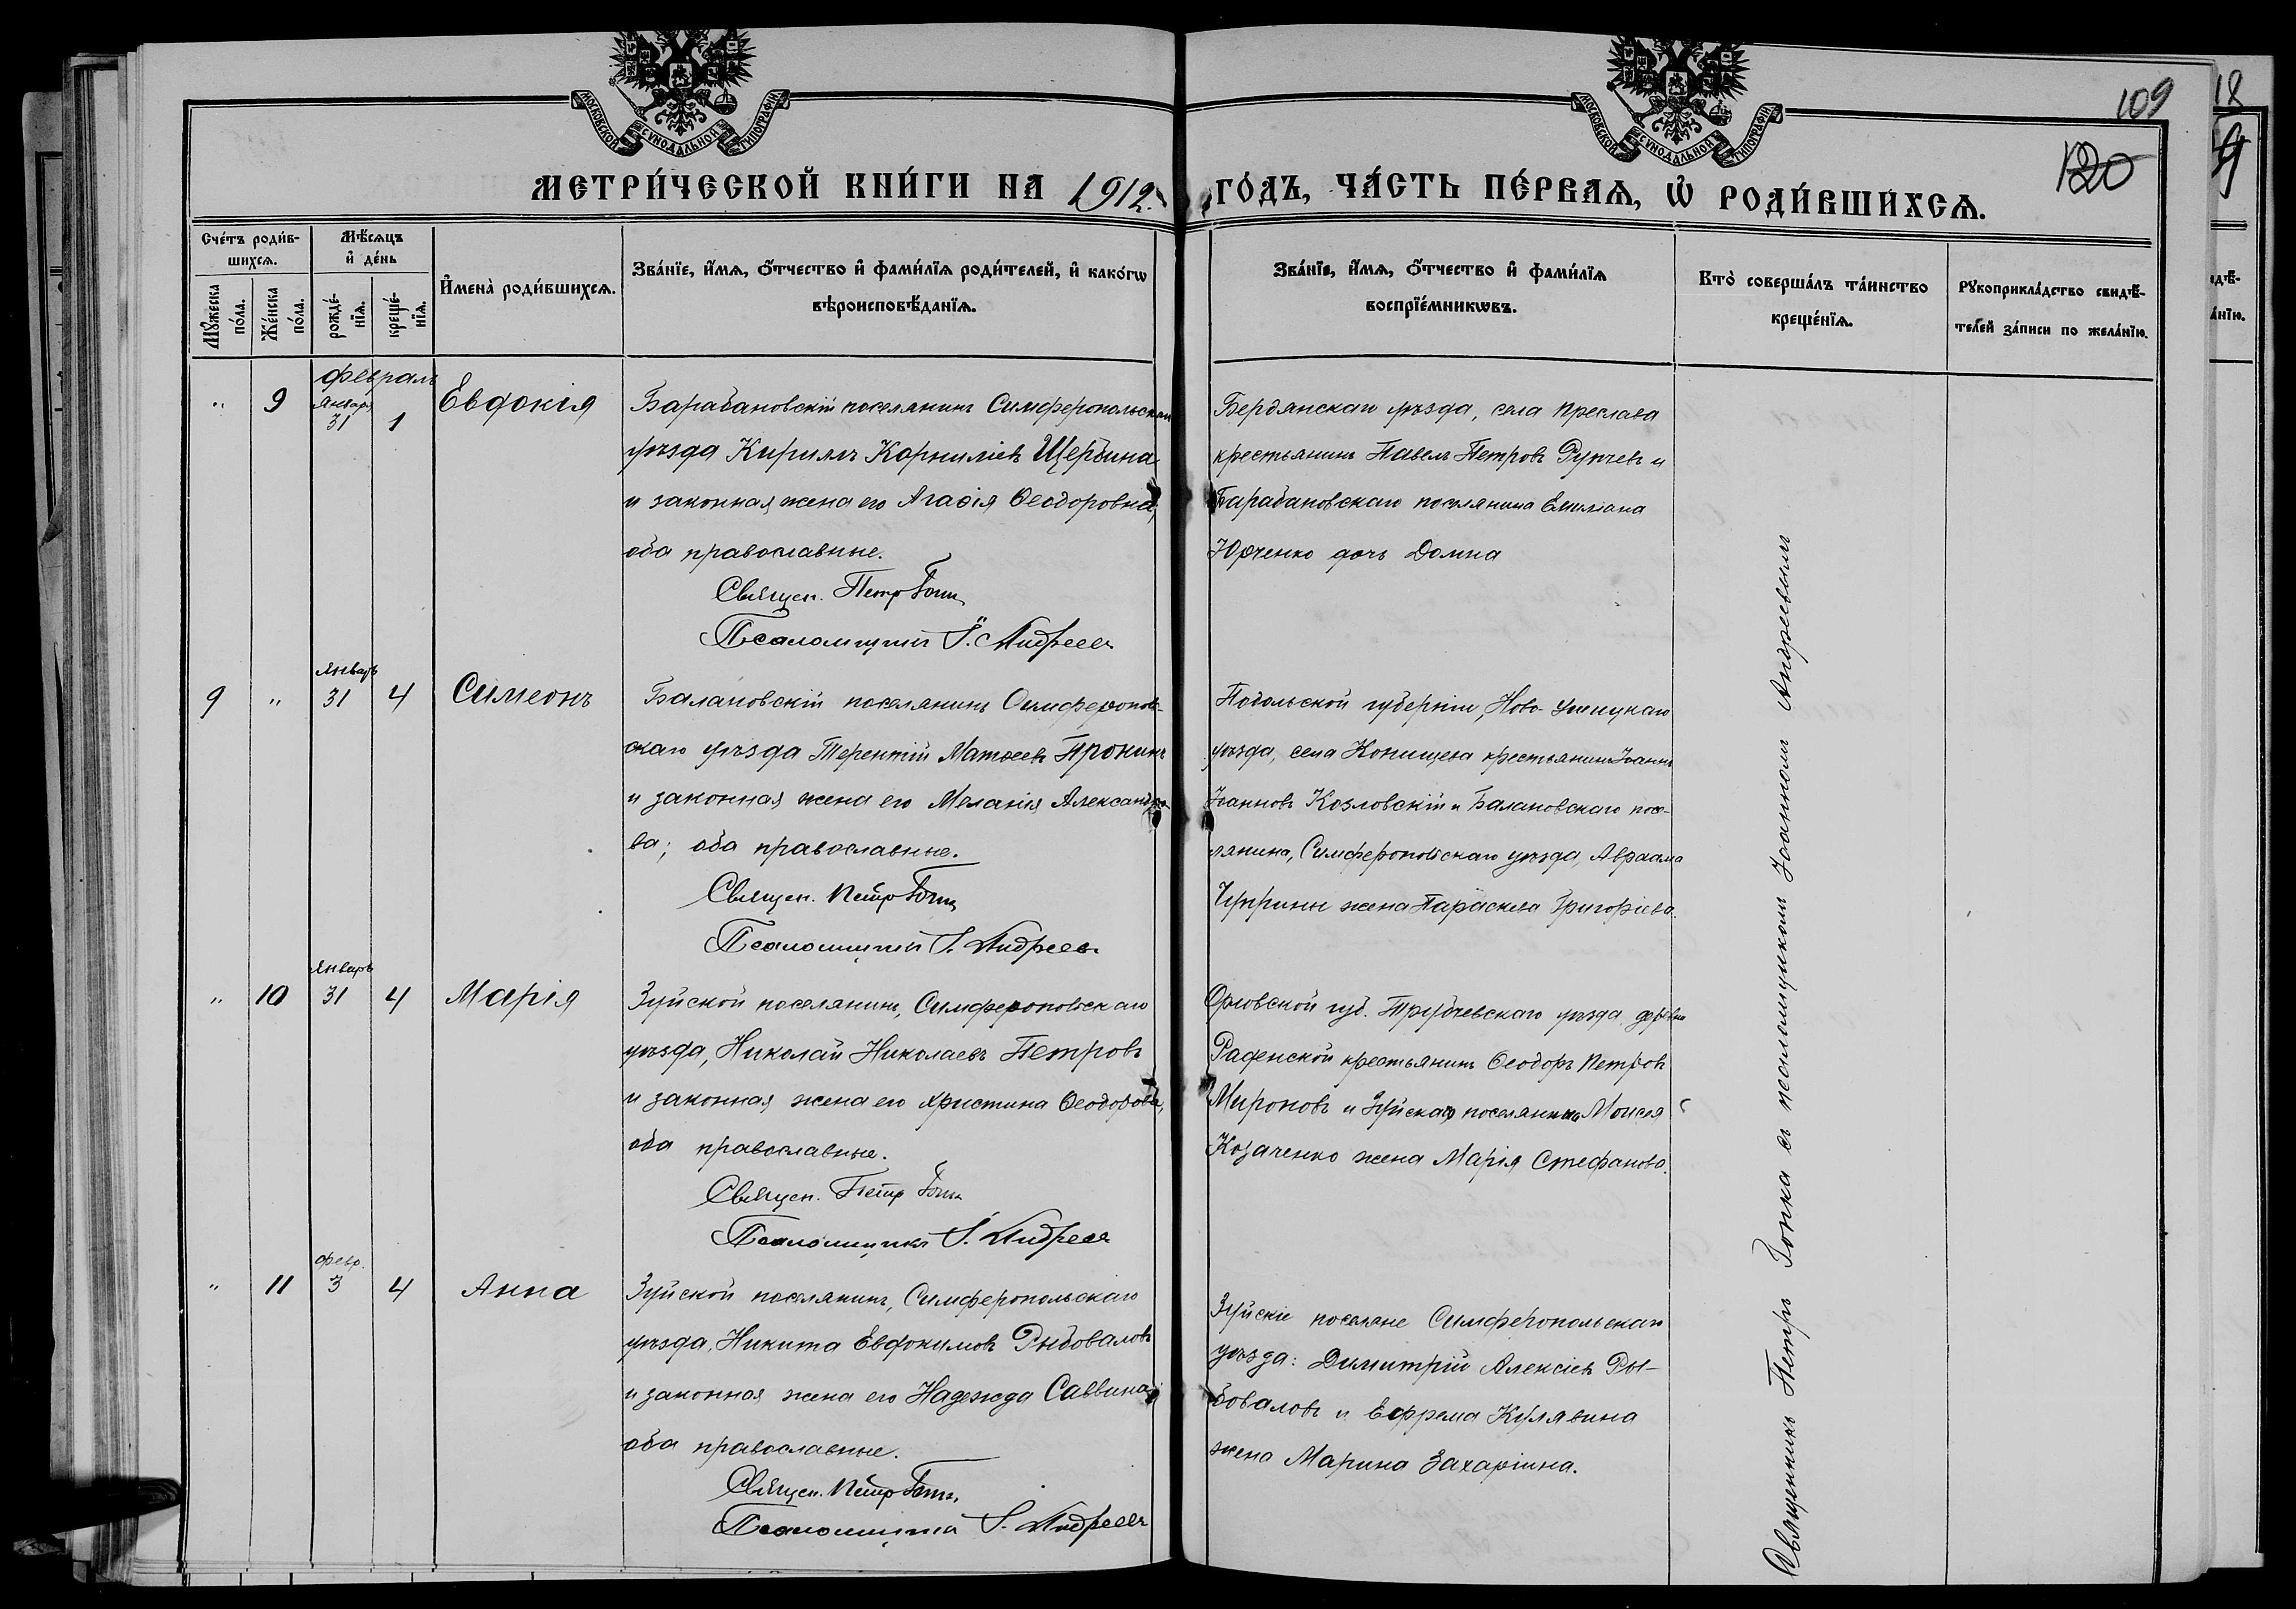 МОСКОВСКОЙ СУНОДАЛЬНОЙ ТИПОГРАФІИ
МОСКОВСКОЙ СУНОДАЛЬНОЙ ТИПОГРАФІИ
109
120
18
МЕТРИ́ЧЕСКОЙ КНИ́ГИ НА 1912 ГО́ДЪ, ЧА́СТЬ ПЕ́РВАЯ, Ѡ҆ РОДИ́ВШИХСЯ.
Сче́тъ роди́в-
шихся.
Мꙋ́жеска
по́ла.
Же́нска
по́ла.
Мѣ́сяцъ
и҆ де́нь
рожде́-
нїя.
креще́-
нїя.
И҆мена̀ роди́вшихся.
Зва́нїе, и҆́мя, ѻ҆́тчество и҆ фами́лїя роди́телей, и҆ како́гѡ
вѣроисповѣ́данїя.
Зва́нїе, и҆́мя, ѻ҆́тчество и҆ фами́лїя
воспрїе́мникѡвъ.
Кто̀ соверша́лъ та́инство
креще́нїя.
Рꙋкоприкла́дство свидѣ́-
телей за́писи по жела́нїю.
Февраль
" 9 Января 31 1 Евдокія
Барабановскій поселянинъ Симферопольскаго
уѣзда Кириллъ Корниліевъ Щербина
и законная жена его Агаѳія Ѳеодоровна,
оба православные.
Священ. Петр
Псаломщикъ І. Андреевъ
Бердянскаго уѣзда, села Преслава
крестьянинъ Павелъ Петровъ Рупчевъ и
Барабановскаго поселянина Емиліана
Юрченко дочь Домна
9 " Январь 31 4 Симеонъ
Балановскій поселянинъ Симферополь-
скаго уѣзда Терентій Матѳеевъ Пронинъ
и законная жена его Меланія Александро-
ва; оба православные.
Священ. Петр
Псаломщикъ І. Андреевъ
Подольской губерніи, Ново-Ушицкаго
уѣзда, села Конищева крестьянинъ Іоаннъ
Іоанновъ Козловскій и Балановскаго посе-
лянина, Симферопольскаго уѣзда, Авраама
Чуприны жена Параскева Григоріева.
" 10 Январь 31 4 Марія
Зуйской поселянинъ, Симферопольскаго
уѣзда, Николай Николаевъ Петровъ
и законная жена его Христина Ѳеодорова,
оба православные.
Священ. Петр
Псаломщикъ І. Андреевъ
Орловской губ. Трубчевскаго уѣзда, деревни
Раденской крестьянинъ Ѳеодоръ Петровъ
Мироновъ и Зуйскаго поселянина Моисея
Козаченко жена Марія Стефанова.
" 11 Февр. 3 4 Анна
Зуйской поселянинъ, Симферопольскаго
уѣзда, Никита Евдокимовъ Рыбоваловъ
и законная жена его Надежда Саввина,
оба православные.
Священ. Петр
Псаломщикъ І. Андреевъ
Зуйскіе поселяне Симферопольскаго
уѣзда: Димитрій Алексіевъ Ры-
боваловъ и Ефрема Кулявина
жена Марина Захаріина.
Священникъ Петръ съ псаломщикомъ Іоанномъ Андреевымъ